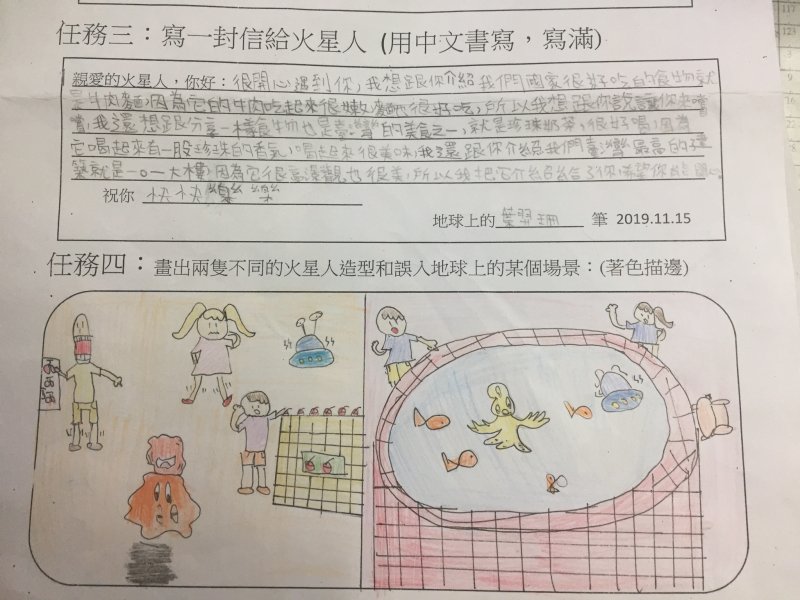 任務三：寫一封信給火星人 (用中文書寫，寫滿)
親愛的火星人，你好：很開心遇到你，我想跟你介紹我們國家很好吃的食物就
是牛肉麵，因為它的牛肉吃起來很嫩，麵很好吃，所以我想跟你說讓你去嚐
嚐，我還想跟分享一樣食物也是臺灣的美食之一，就是珍珠奶茶，很好喝，因為
它喝起來有一股珍珠的香氣，喝起來很美味，我還跟你介紹我們臺灣最高的建
築就是一0一大樓，因為它很高景觀也很美，所以我把它介紹給你，希望你能開心
祝你 快快樂樂
地球上的 葉羿珊 筆 2019.11.15
任務四：畫出兩隻不同的火星人造型和誤入地球上的某個場景：(著色描邊)